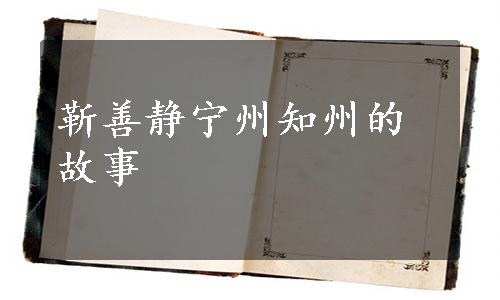 靳善静宁州知州的
故事